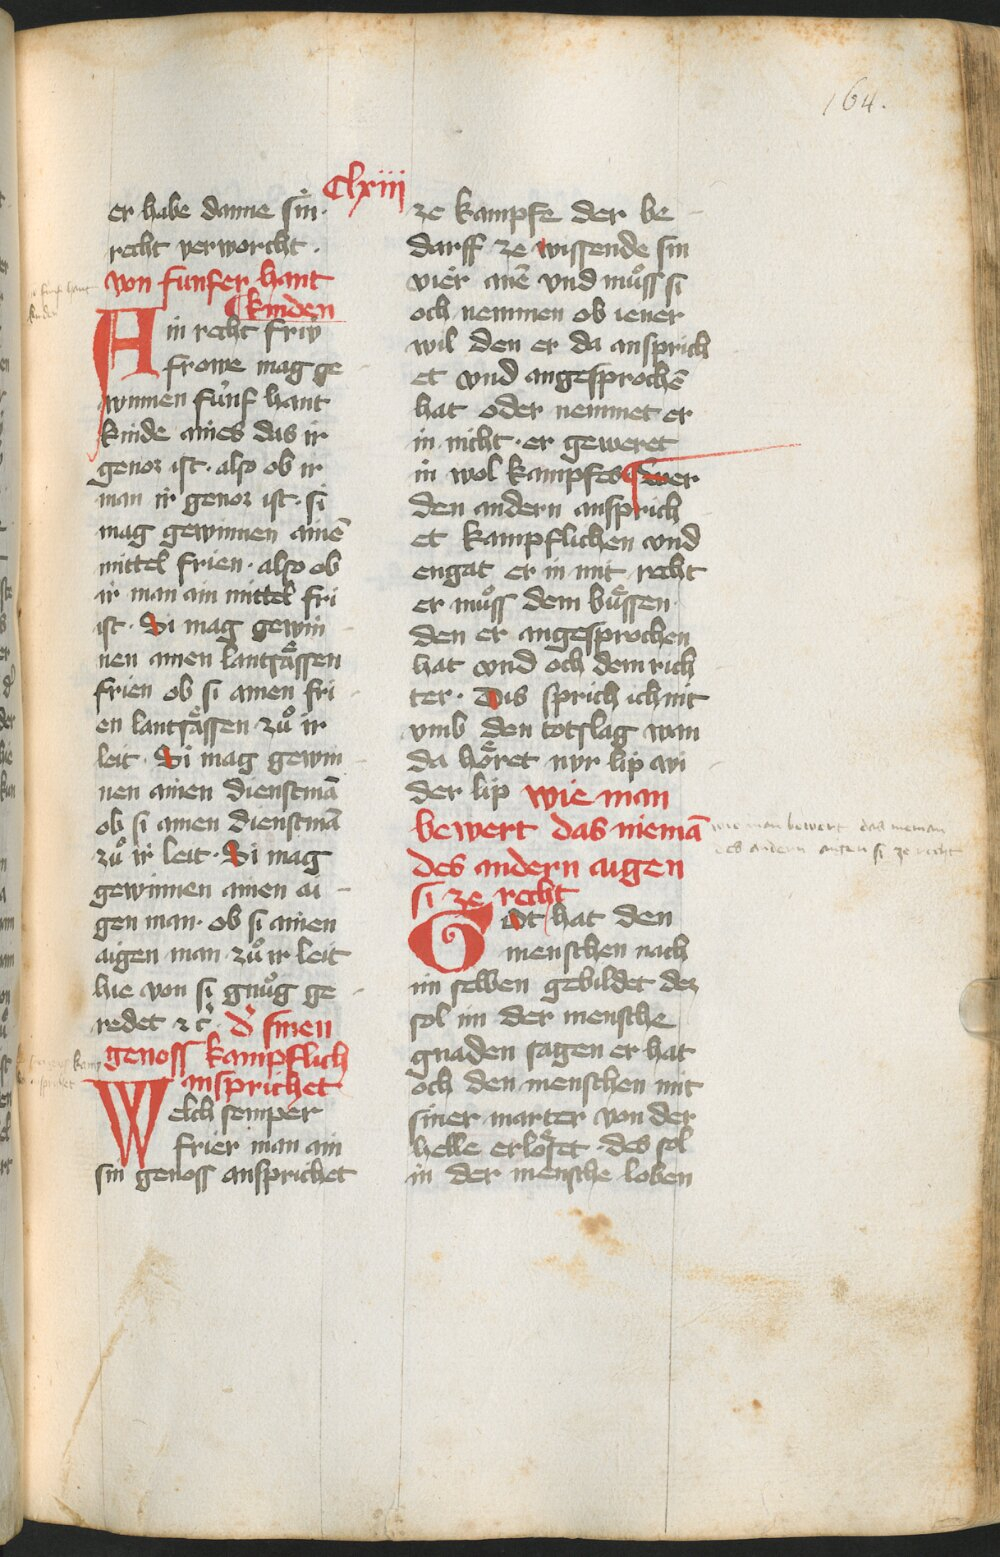 164.
Clxiii
er habe danne sin·
recht verworcht·
von funfer hant
kinden
Ain recht friy
frowe mag ge
winnen fúnf hant
kinde aines das ir
genoz ist· also ob ir
man ir genoz ist· si
mag gewinnen ainē
mittel frien· also ob
ir man ain mittel fri
ist· Si mag gewin
nen ainen lantsåssen
frien ob si ainen fri
en lantsåssen zů ir
leit· Si mag gewin
nen ainen dienstmā
ob si ainen dienstmā
zů ir leit· Si mag
gewinnen ainen ai
gen man· ob si ainen
aigen man zů ir leit
hie von si gnůg ge
redet ⁊ c̄ d᷑ sinen
genoss kampflich
ansprichet
Welch semper
frier man ain
sin genoss ansprichet
ze kampfe der be
darff ze wissende sin
vier anē vnd můss si
och nemmen ob iener
wil den er da ansprich
et vnd angesprochē
hat oder nemmet er
in nicht· er geweret
in wol kampfes Swer
den andern ansprich
et kampflichen vnd
engat er in mit recht
er můss dem bůssen
den er angesprochen
hat vnd och dem rich
ter· Dis sprich ich nit
vmb den totslag wan
da hőret nyr lip wi
der lip wie man
bewert das niemā
des andern aigen
si ze recht
Got hat den
menschen nach
im selben gebildet dez
sol im der mensche
gnaden sagen er hat
och den menschen mit
siner marter von der
helle erlőset· des sol
in der mensche loben
wie man bewert das nieman
des andern aigen si ze recht